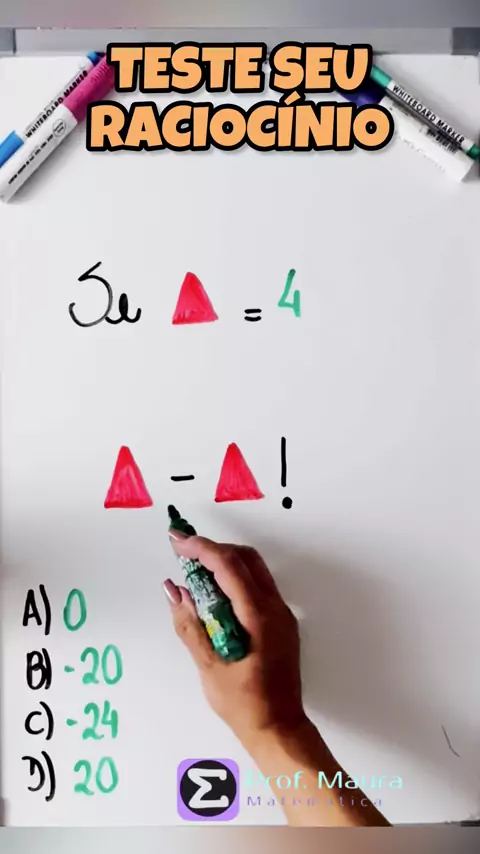 TESTE SEU
RACIOCÍNIO
WHITEBOARD MARKER
WHITEBOARD MARKER
Se = 4
- !
A) 0
B) -20
C) -24
D) 20
Σ Prof. Maura
Matemática